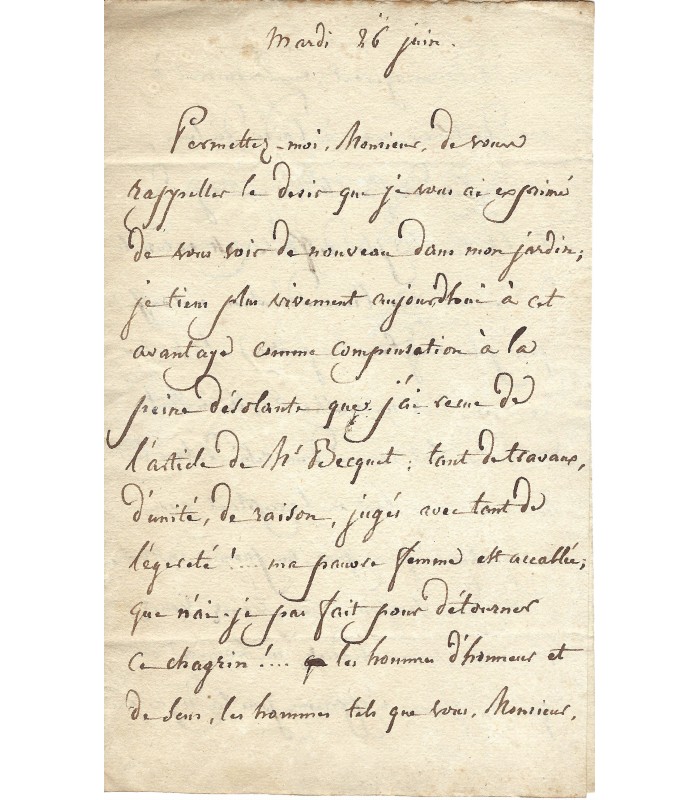 Mardi 26 juin.
Permettez-moi, Monsieur, de vous
rappeller le desir que je vous ai exprimé
de vous voir de nouveau dans mon jardin;
je tiens plus vivement aujourdhui à cet
avantage comme compensation à la
peine désolante que j'ai recue de
l'article de Mr Becquet; tant de travaux,
d'unité, de raison, jugés avec tant de
légereté!... ma pauvre femme est accablée;
que n'ai-je pas fait pour détourner
ce chagrin!... les hommes d'honneur et
de sens, les hommes tels que vous, Monsieur,